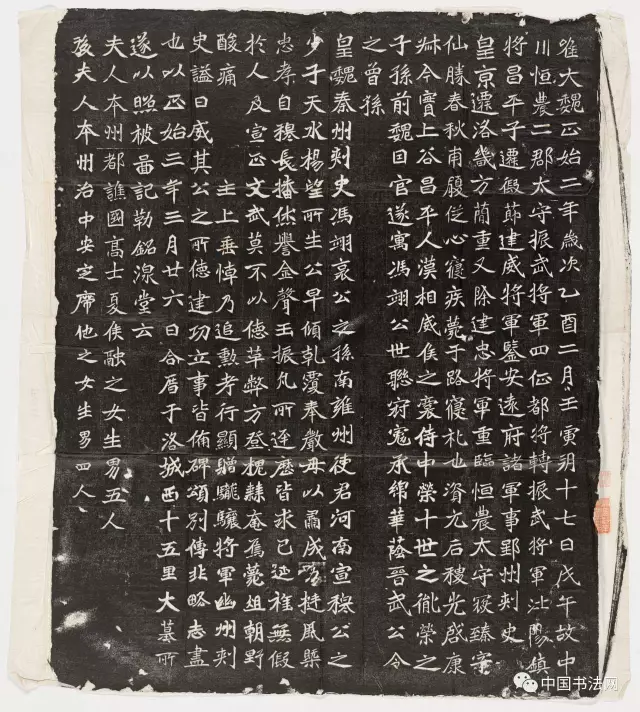 唯大魏正始二年歲次乙酉二月壬寅朔十七日戊午故中
川恒農二郡太守振武將軍四征都將轉振武將軍沘陽鎮
將昌平子遷假節建威將軍鑒安遠府諸軍事郢州刺史
皇京遷洛畿方簡重又除建忠將軍重臨恒農太守寇臻字
仙勝春秋甫履從心寢疾薨于路寢札也資元后稷光啟康
叔令實上谷昌平人漢相威侯之裔侍中榮十世之胤榮之
子孫前魏因官遂寓馮翊公世聯冠冕承綿華蔭晉武公令
之曾孫
皇魏秦州刺史馮翊哀公之孫南雍州使君河南宣穆公之
少子天水楊望所生公早傾乾覆奉嚴母以肅成挺風槩
忠孝自穆長播休譽金聲玉振凡所逕歷皆求己延無假
於人及宣正文武莫不以德革弊方登槐棘奄焉薨殂朝野
酸痛 主上垂悼乃追勲考行顯贈驤將軍幽州刾
史謚曰威其公之所德建功立事皆備碑頌別傳非略志盡
也以正始三年三月廿六日合厝于洛城西十五里大墓所
遂以照被啚記勒銘湶堂云
夫人本州都譙國高士夏侯融之女生男五人
後夫人本州治中安定席他之女生男四人
中国书法网